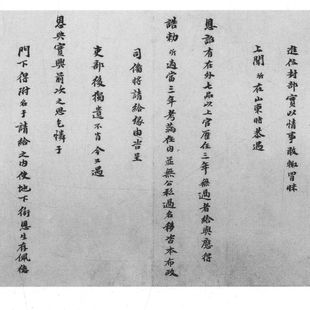 進位封部實以情事敢輒冒昧
上聞所在山東時恭遇
恩詔有在外七品以上官歷任三年無過者給與應得
誥勑所適當三年考滿在內並無公私過名移咨本布政
司備將請給緣由咨呈
吏部後獨遺不旨今又遇
恩典實與前次之恩乞憐于
門下得附名于請給之內使地下銜恩生存佩德